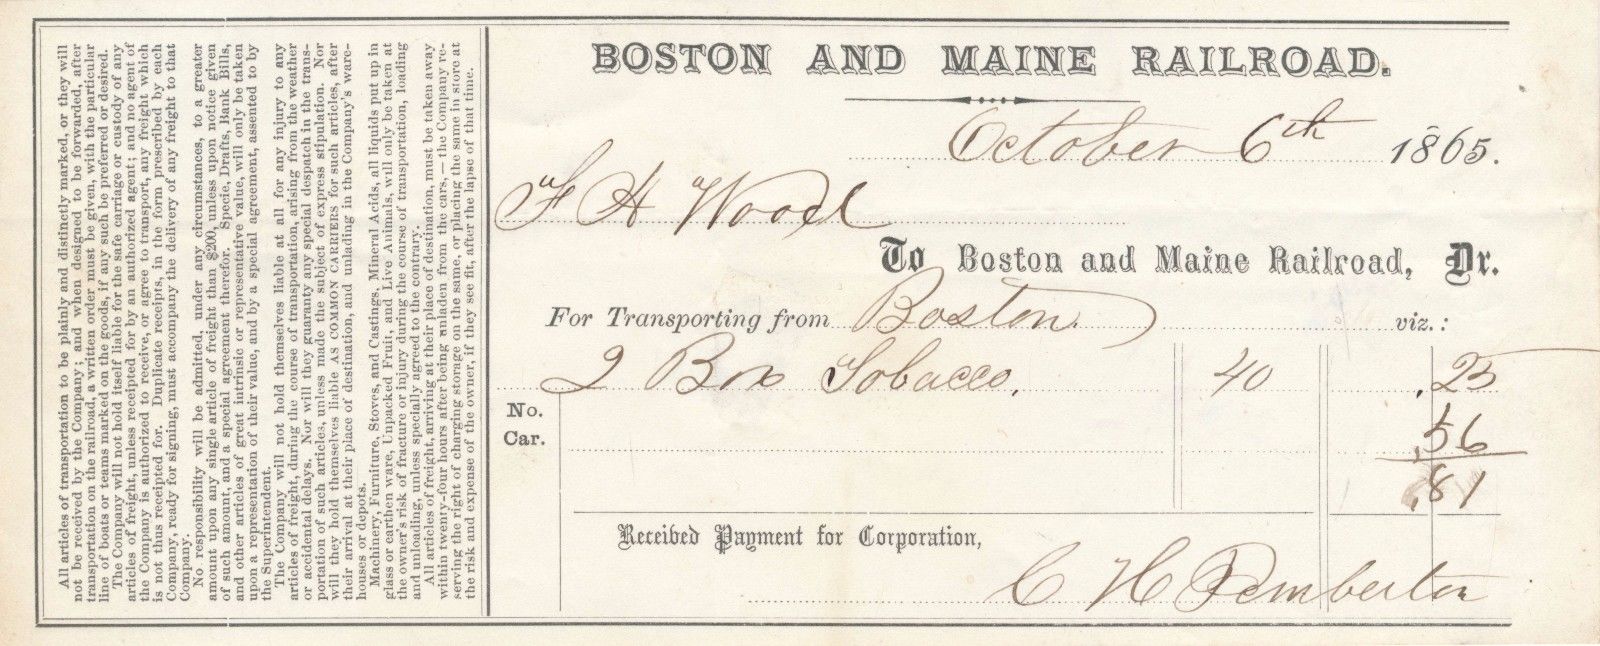 All articles of transportation to be plainly and distinctly marked, or they will
not be received by the Company; and when designed to be forwarded, after
transportation on the railroad, a written order must be given, with the particular
line of boats or teams marked on the goods, if any such be preferred or desired.
The Company will not hold itself liable for the safe carriage or custody of any
articles of freight, unless receipted for by an authorized agent; and no agent of
the Company is authorized to receive, or agree to transport, any freight which
is not thus receipted for. Duplicate receipts, in the form prescribed by each
Company, ready for signing, must accompany the delivery of any freight to that
Company.
No responsibility will be admitted, under any circumstances, to a greater
amount upon any single article of freight than $200, unless upon notice given
of such amount, and a special agreement therefor. Specie, Drafts, Bank Bills,
and other articles of great intrinsic or representative value, will only be taken
upon a representation of their value, and by a special agreement, assented to by
the Superintendent.
The Company will not hold themselves liable at all for any injury to any
articles of freight, during the course of transportation, arising from the weather
or accidental delays. Nor will they guaranty any special despatch in the trans-
portation of such articles, unless made the subject of express stipulation. Nor
will they hold themselves liable AS COMMON CARRIERS for such articles, after
their arrival at their place of destination, and unlading in the Company's ware-
houses or depots.
Machinery, Furniture, Stoves, and Castings, Mineral Acids, all liquids put up in
glass or earthen ware, Unpacked Fruit, and Live Animals, will only be taken at
the owner's risk of fracture or injury during the course of transportation, loading
and unloading, unless specially agreed to the contrary.
All articles of freight, arriving at their place of destination, must be taken away
within twenty-four hours after being unladen from the cars,—the Company re-
serving the right of charging storage on the same, or placing the same in store at
the risk and expense of the owner, if they see fit, after the lapse of that time.
BOSTON AND MAINE RAILROAD.
October 6th 1865.
F H Wood
To Boston and Maine Railroad, Dr.
For Transporting from Boston viz.:
2 Box Tobacco. 40 .25
No.
Car.
.56
.81
Received Payment for Corporation,
C H Pemberton